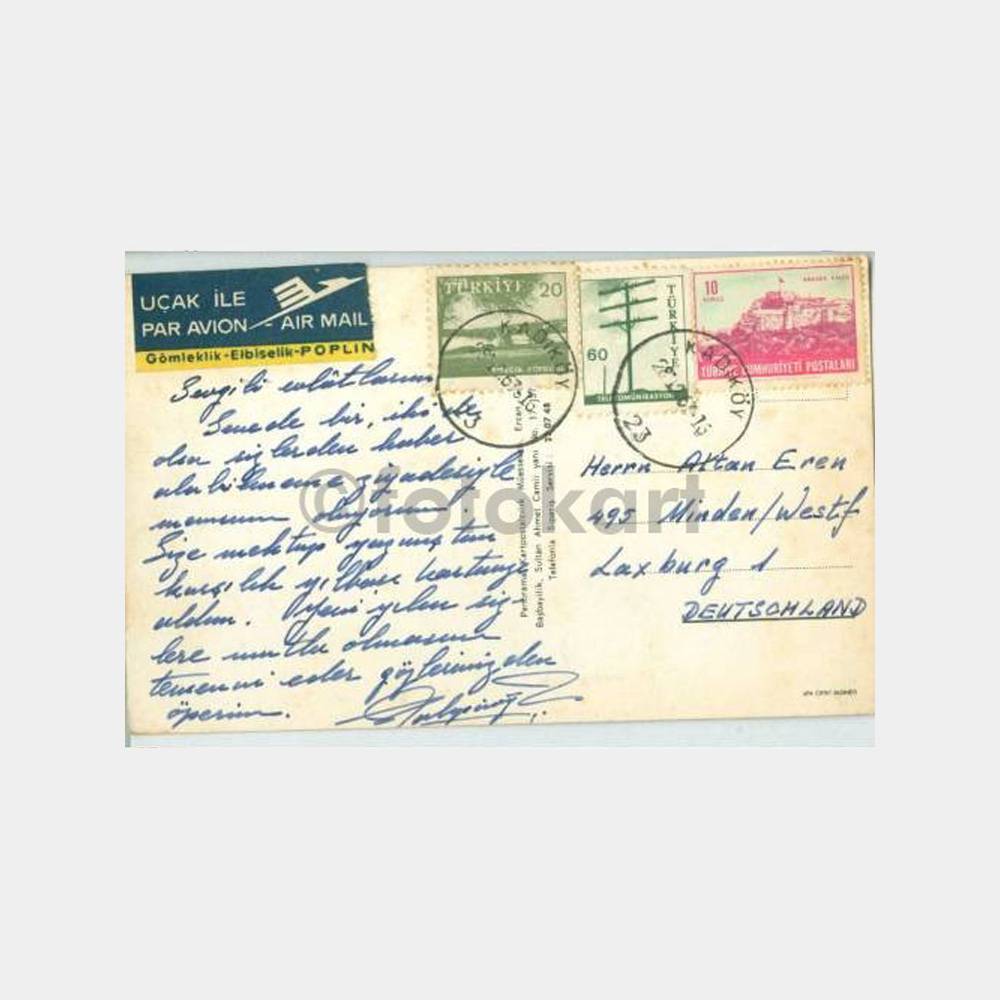 UÇAK İLE
PAR AVION - AIR MAIL
Gömleklik-Elbiselik-POPLİN
TÜRKİYE 20
60
TÜRKİYE
TELEKOMÜNİKASYON
10
KURUŞ
ANKARA KALESİ
TÜRKİYE CUMHURİYETİ POSTALARI
KADIKÖY
KADIKÖY
23
Sevgili evlâtlarım
Senede bir, iki de
olsa sizlerden haber
alabilmeme ziyadesiyle
memnun oluyorum
Size mektup yazmıştım
karşılık yılbaşı kartınızı
aldım. Yeni yılın siz-
lere mutlu olmasını
temenni eder gözlerinizden
öperim.
Panorama Kartpostalcılık Müessesesi Ercan
Başbayilik, Sultan Ahmet Camii yanı No.
Telefonla Sipariş Servisi: 07 48
Herrn Altan Eren
495 Minden/Westf
Laxburg 1
DEUTSCHLAND
©fotokart